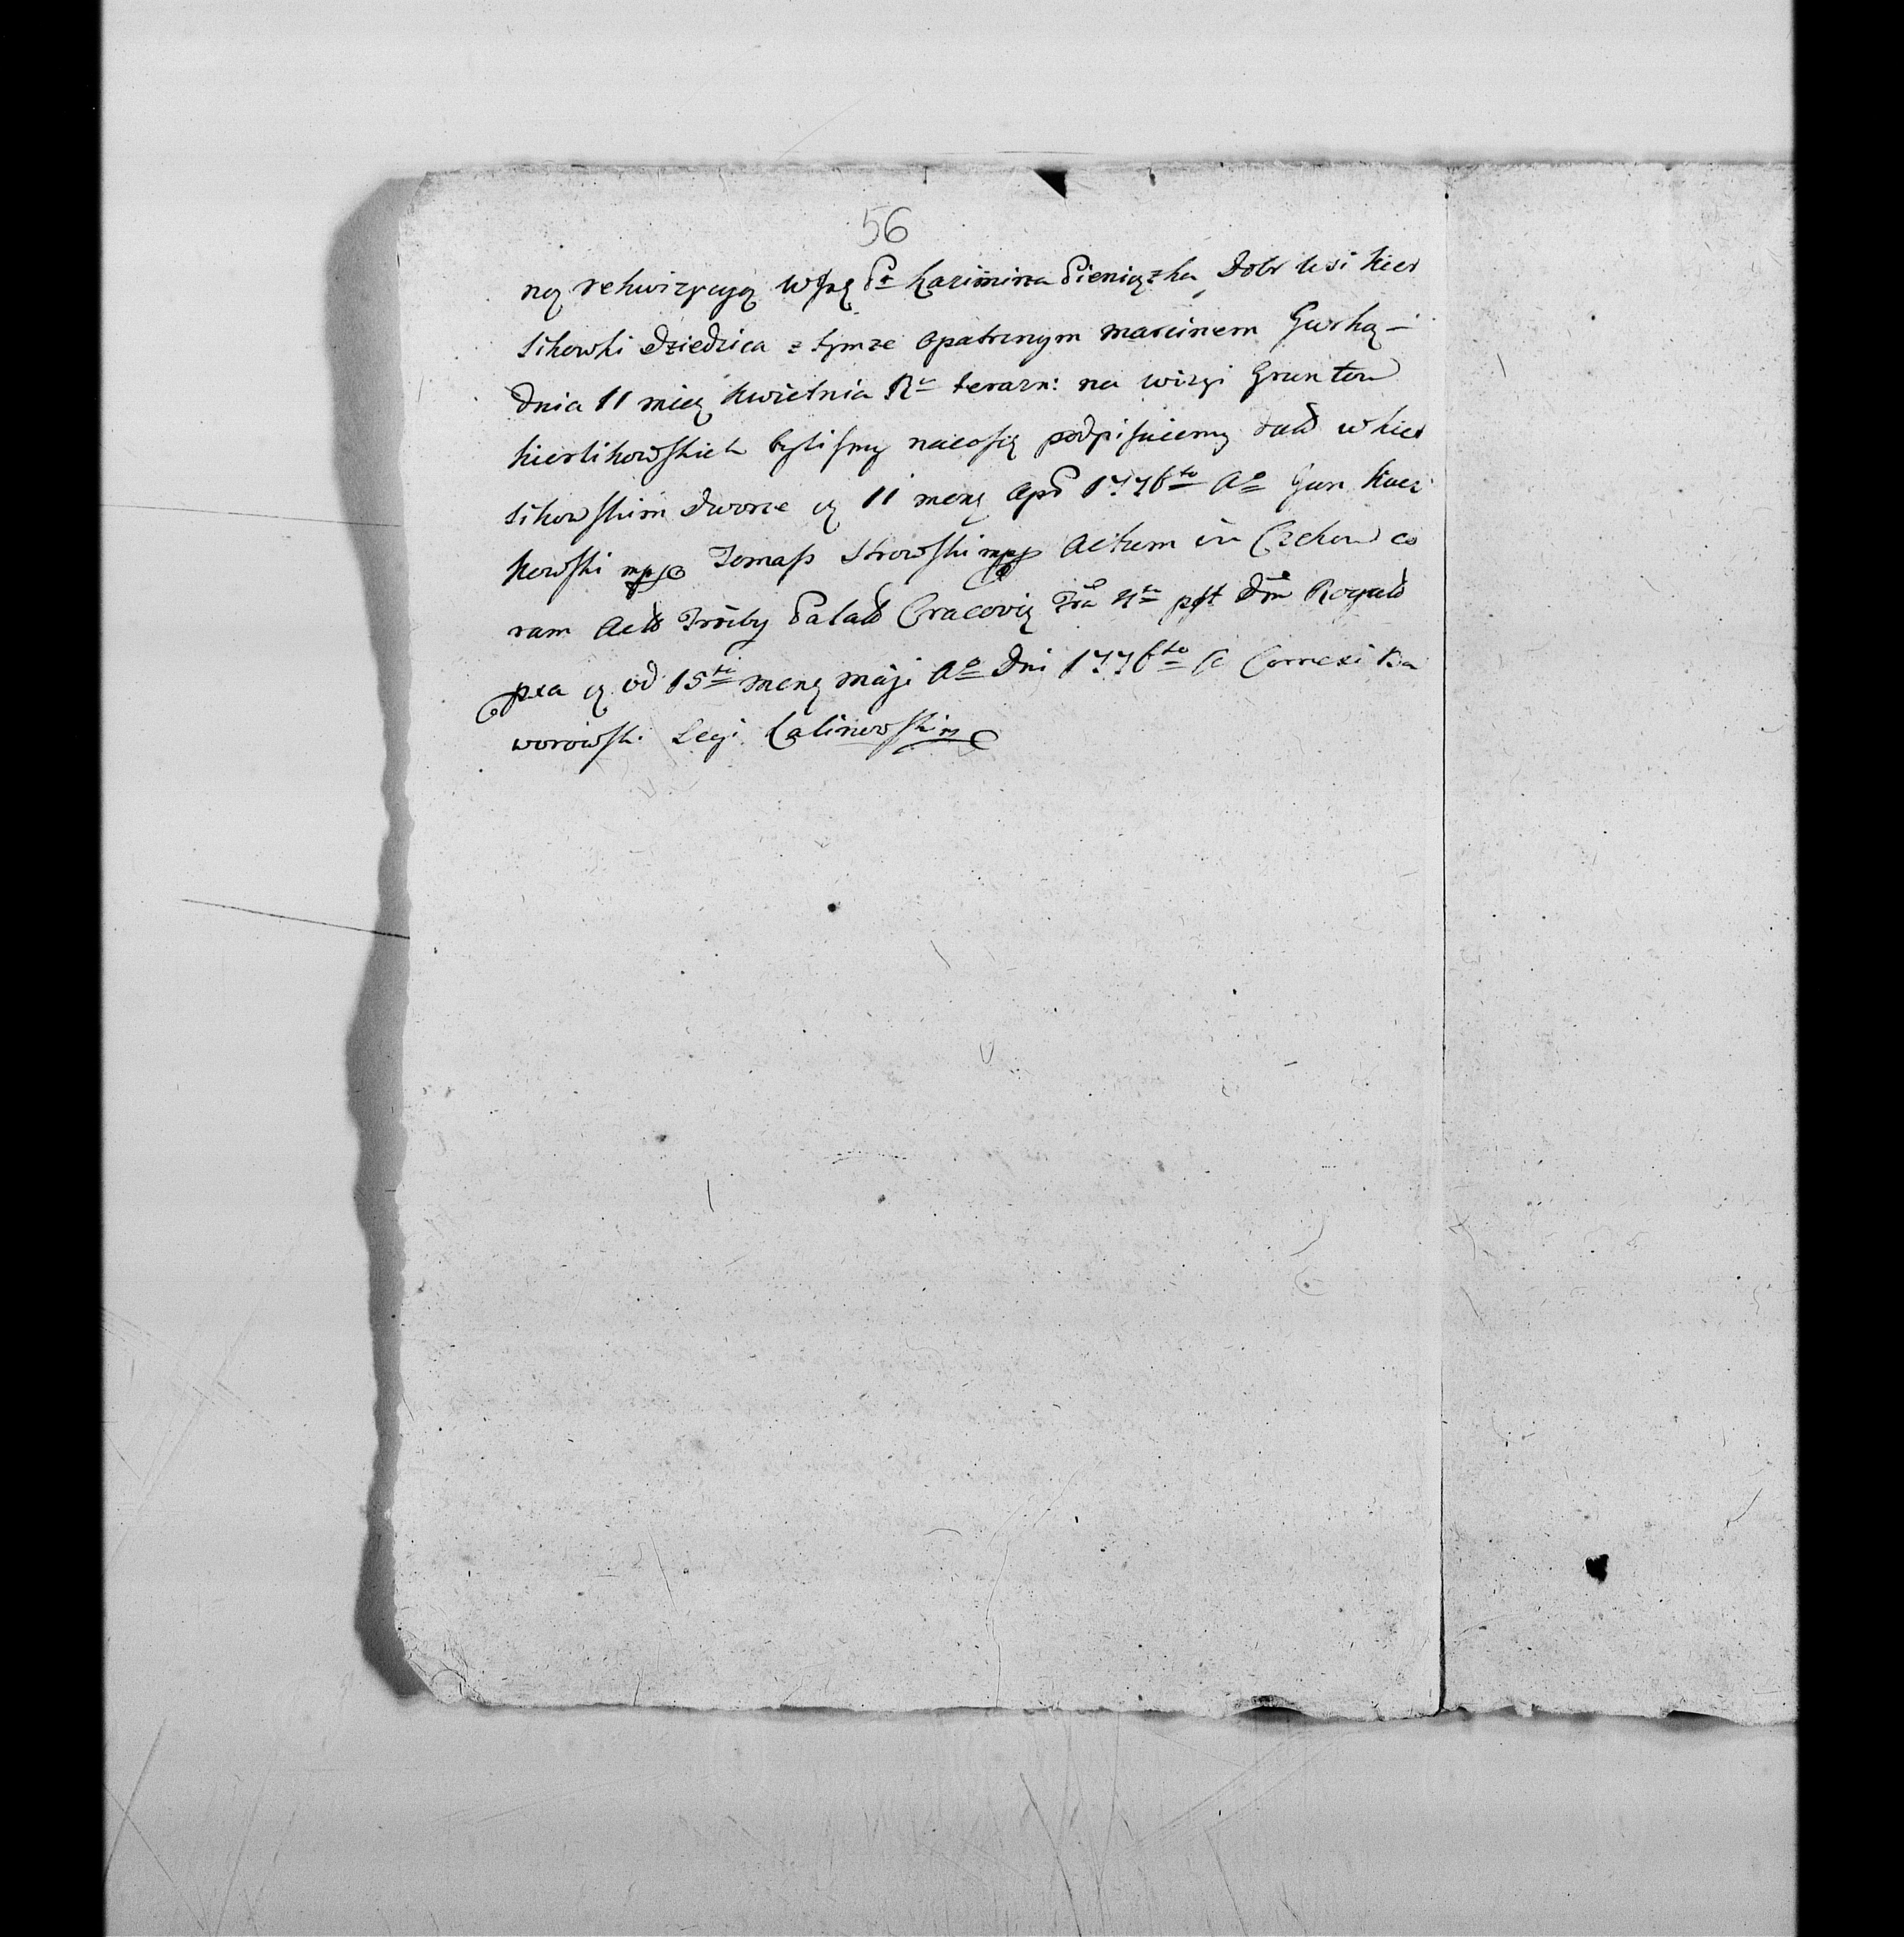 56
ną rekwizycyą WJmę Pa Kazimirza Pieniążka Dobr Wsi Kier
likowki Dziedzica z tymze Opatrznym Marcinem Gurką –
Dnia 11 mieę Kwietnia Ru terazn: na wizyi Gruntow
Kierlikowskich bylismy nacosię podpisuiemy datt w Kier
likowskim dworze ę 11 mens Apr 1776to Ao Jan Kuci
kowski mpp Tomasz Strowski mpp Actum in Czchow co
ram Actis Trćiby Palatt Cracovię Fra 4ta pst Dm Rogatt
pxa ę vd 15ta mens Maji Ao Dni 1776to C Correxi Ba
worowski Legi Calinowski m